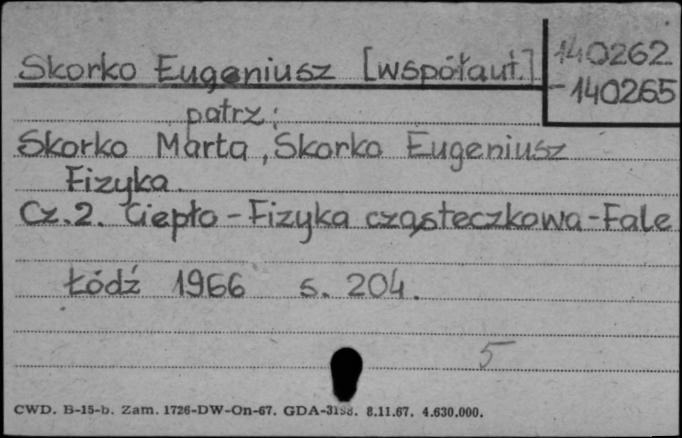 Skorko Eugeniusz [współaut.]
140262
-140265
patrz:
Skorko Marta, Skorko Eugeniusz
Fizyka.
Cz.2. Ciepło - Fizyka cząsteczkowa - Fale
Łódź 1966 s. 204.
5
CWD. B-15-b. Zam. 1726-DW-On-67. GDA-3198. 8.11.67. 4.630.000.